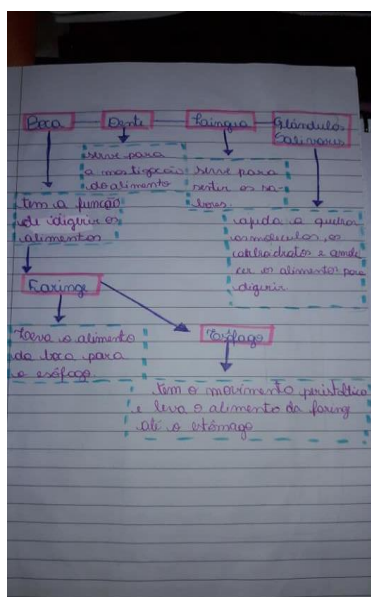 Boca
Dente
Língua
Glândulas
Salivares
serve para
a mastigação
do alimento
serve para
sentir os sa-
bores.
tem a função
de digerir os
alimentos
ajuda a quebrar
as moléculas, os
carboidratos e amole
cer os alimentos para
digerir
Faringe
Leva o alimento
da boca para
o esôfago.
Esôfago
tem o movimento peristáltico
e leva o alimento da faring
até o estômago